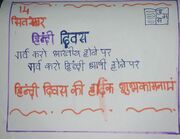 14
सितम्बर
हिन्दी दिवस
गर्व करो भारतीय होने पर
गर्व करो हिन्दी भाषी होने पर
हिन्दी दिवस की हार्दिक शुभकामनाएं